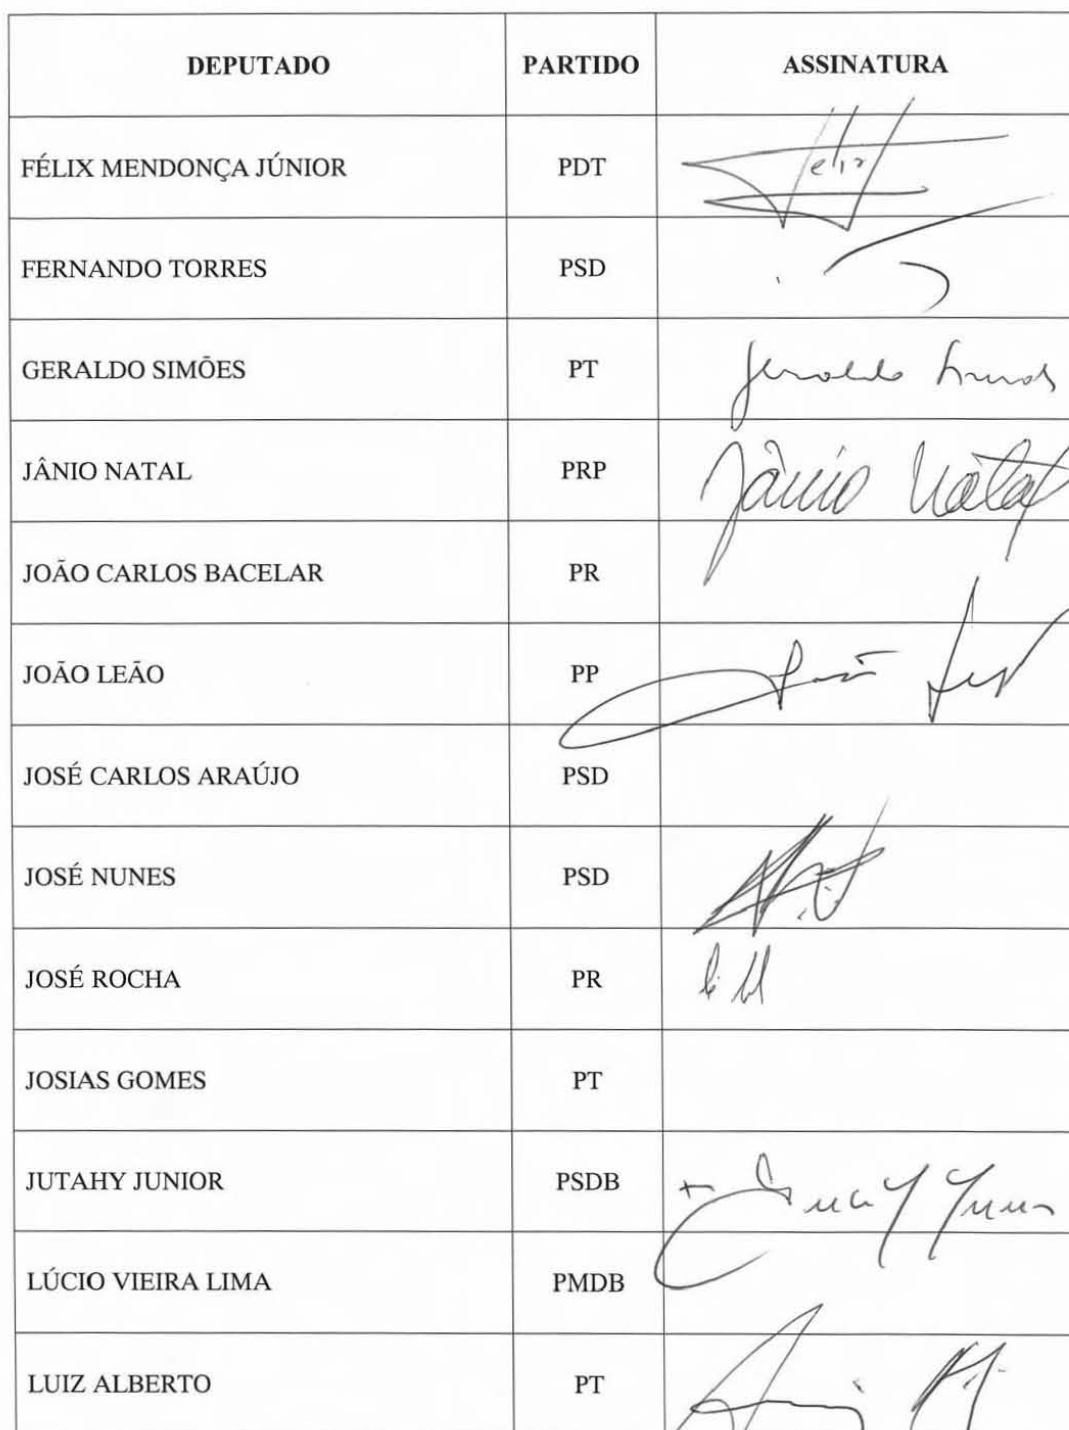 DEPUTADO PARTIDO ASSINATURA
FÉLIX MENDONÇA JÚNIOR PDT Felix
FERNANDO TORRES PSD
GERALDO SIMÕES PT Geraldo Simões
JÂNIO NATAL PRP Jânio Natal
JOÃO CARLOS BACELAR PR
JOÃO LEÃO PP João Leão
JOSÉ CARLOS ARAÚJO PSD
JOSÉ NUNES PSD
JOSÉ ROCHA PR
JOSIAS GOMES PT
JUTAHY JUNIOR PSDB
LÚCIO VIEIRA LIMA PMDB
LUIZ ALBERTO PT